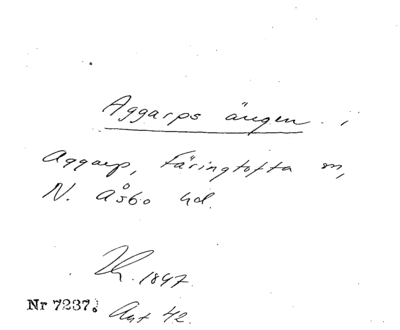 Aggarps ängen i
Aggarp, Färingtofta sn,
N. Åsbo hd.
1847.
Nr 7237. Akt 42.